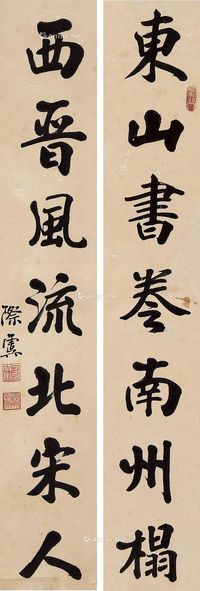 東山書卷南州榻
西晉風流北宋人
際虞